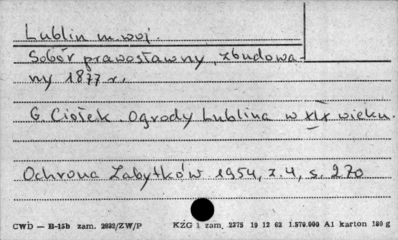 Lublin m. woj.
Sobór prawosławny, zbudowa-
ny 1877 r.
G. Ciołek. Ogrody Lublina w XIX wieku.
Ochrona Zabytków 1954, z. 4, s. 270
CWD — B-15b zam. 2892/ZW/P KZG 1 zam. 2275 19 12 62 1.570.000 A1 karton 180 g